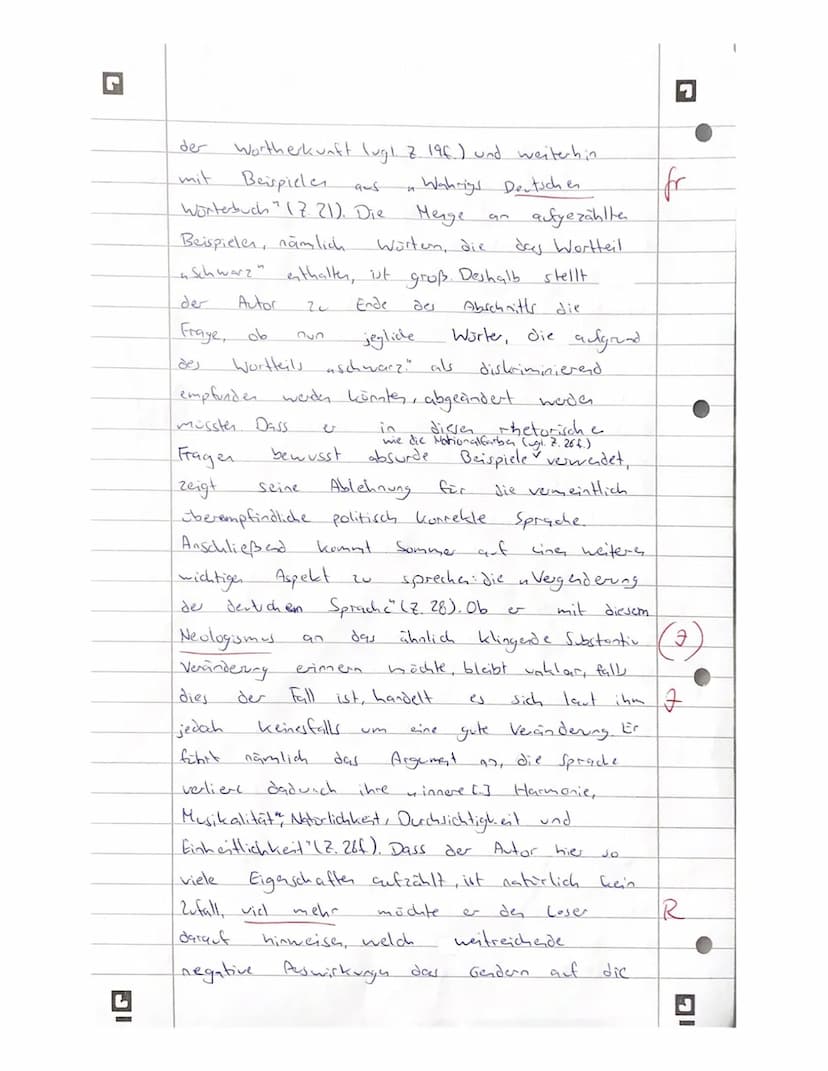 der Wortherkunft (vgl. Z. 19f.) und weiterhin
mit Beispielen aus „Wahrigs Deutschen fr
Wörterbuch" (Z. 21). Die Menge an aufgezählten
Beispielen, nämlich Wörtern, die das Wortteil
„schwarz" enthalten, ist groß. Deshalb stellt
der Autor zu Ende des Abschnitts die
Frage, ob nun jegliche Wörter, die aufgrund
des Wortteils „schwarz" als diskriminierend
empfunden werden könnten, abgeändert werden
müssten. Dass er in diesen rhetorischen
wie die Nationalfarben (vgl. Z. 26f.)
Fragen bewusst absurde Beispiele verwendet,
zeigt seine Ablehnung für die vermeintlich
überempfindliche politisch korrekte Sprache.
Anschließend kommt Sommer auf einen weiteren
wichtigen Aspekt zu sprechen: die „Vergenderung
der deutschen Sprache" (Z. 28). Ob er mit diesem
Neologismus an das ähnlich klingende Substantiv (Z)
Veränderung erinnern möchte, bleibt unklar, falls
dies der Fall ist, handelt es sich laut ihm Z
jedoch keinesfalls um eine gute Veränderung. Er
führt nämlich das Argument an, die Sprache
verliere dadurch ihre „innere [.] Harmonie,
Musikalität", Natürlichkeit, Durchsichtigkeit und
Einheitlichkeit" (Z. 26f.). Dass der Autor hier so
viele Eigenschaften aufzählt, ist natürlich kein
Zufall, viel mehr möchte er den Leser R
darauf hinweisen, welch weitreichende
negative Auswirkungen das Gendern auf die